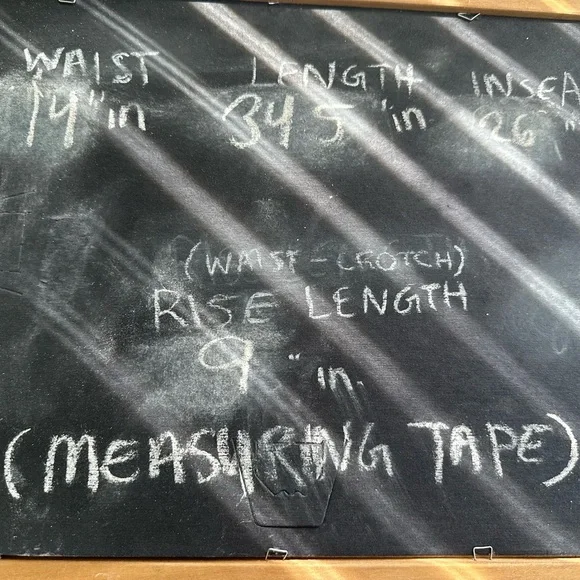 WAIST LENGTH INSEA
14" in 34 5 "in 26 "
(WAIST - CROTCH)
RISE LENGTH
9 " in.
(MEASURING TAPE)